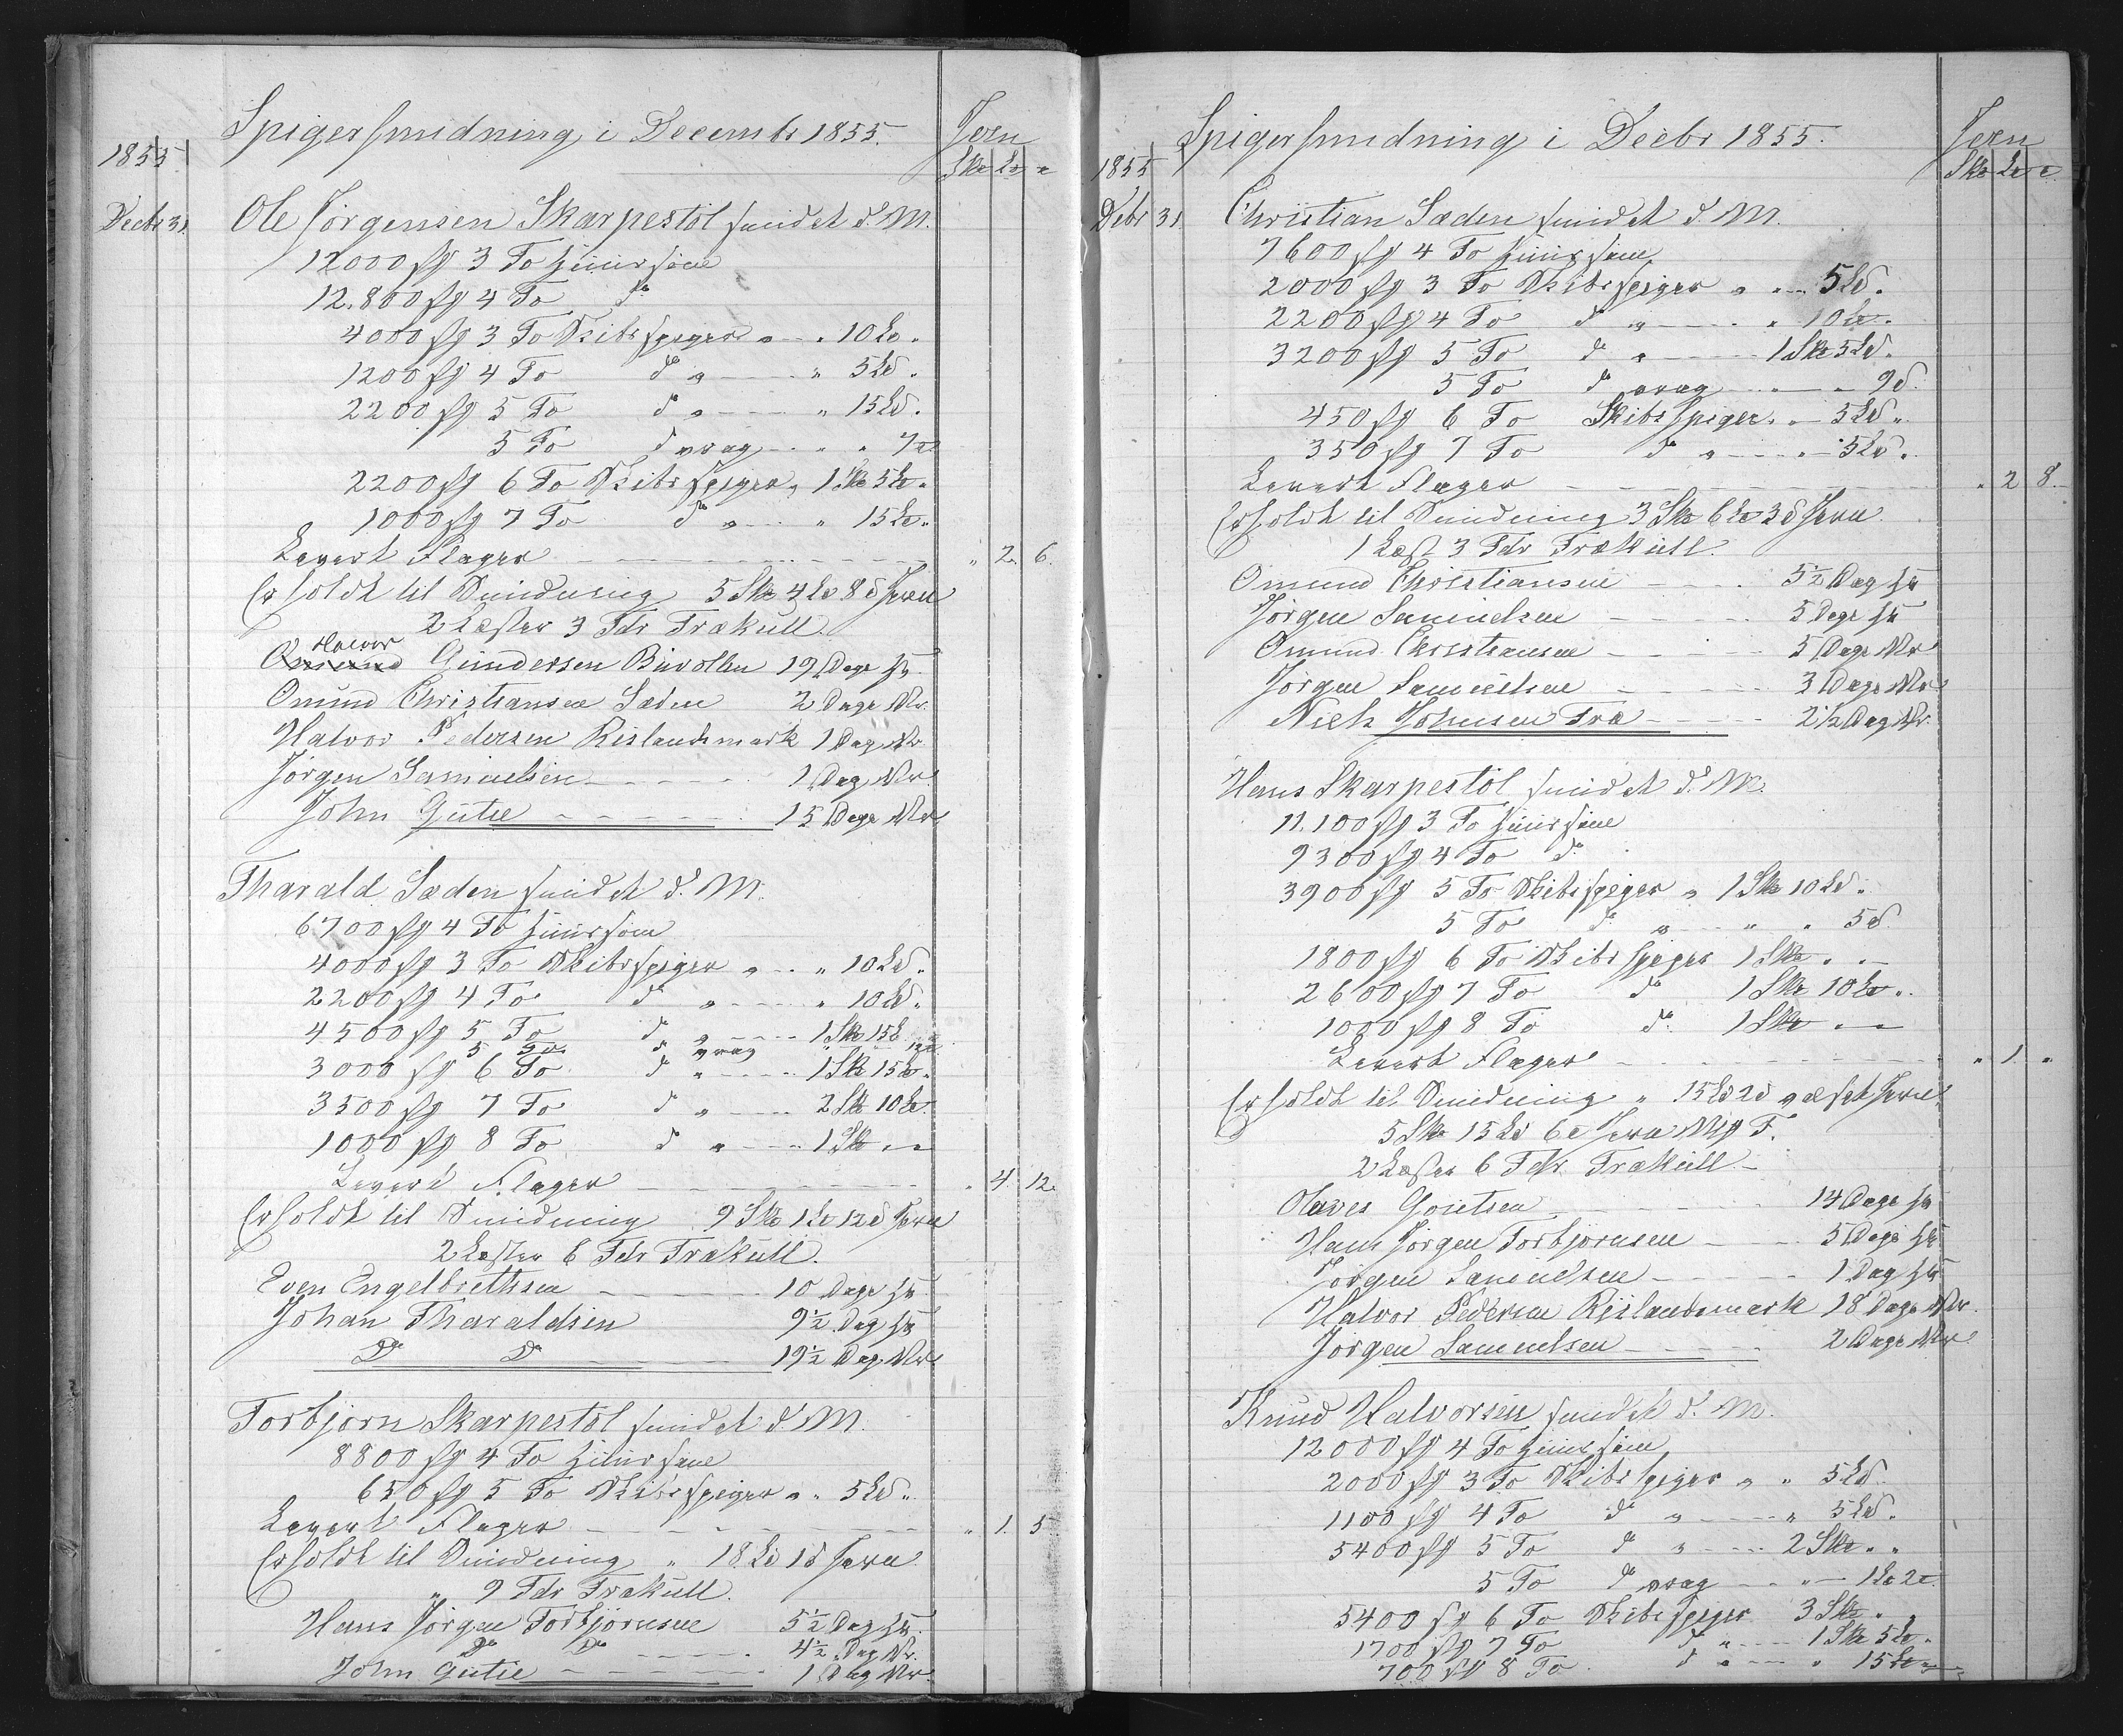 Spigersmidning i Decembr 1855.
Jern
1855
Sk℔ L℔ ℔
Decbr 31. Ole Jörgensen Skarpestöl smidet d. M.
12000 st 3 To
12.800 st 4 To do
4000 st 3 To Skibsspiger " - " 10 L℔ "
1200 st 4 To do " - " 5 L℔ "
2200 st 5 To do " - " 15 L℔ "
5 To do vrag - " " 7 ℔
2200 st 6 To Skibsspiger " 1 Sk℔ 5 L℔ "
1000 st 7 To do " - " 15 L℔ "
Levert Flager - - - " 2. 6.
Erholdt til Smidning 5 Sk℔ 4 L℔ 8 ℔ Jern
2 Læster 3 Tdr Trækull.
Halvor
Omund Gundersen 19 Dage
Omund Christiansen Læden 2 Dage
Halvor Pedersen Rislandsmark 1 Dag
Jörgen Samuelsen - - - 1 Dag
John Gutie - - - 15 Dage
Tharald Læden smidet d. M.
6700 st 4 To
4000 st 3 To Skibsspiger " - " 10 L℔ "
2200 st 4 To do " - " 10 L℔ "
4500 st 5 To do " - 1 Sk℔ 15 L℔
5 To do vrag " " 12 ℔
3000 st 6 To do " - 1 Sk℔ 15 L℔ "
3500 st 7 To do " - 2 Sk℔ 10 L℔
1000 st 8 To do " - 1 Sk℔ " "
Levert Flager - - - " 4. 12.
Erholdt til Smidning 9 Sk℔ 1 L℔ 12 ℔ Jern
2 Læster 6 Tdr Trækull.
Even Engelbrethsen - - - 10 Dage
Johan Tharaldsen 9½ Dag
Do Do - - - 19½ Dag
Torbjörn Skarpestöl smidet d. M.
8800 st 4 To
650 st 5 To Skibsspiger " " 5 L℔ "
Levert Flager - - - " 1. 5
Erholdt til Smidning " 18 L℔ 1 ℔ Jern
" 9 Tdr Trækull.
Hans Jörgen Torbjörnsen 5½ Dag
Do Do - - - 4½ Dag
John Gutie - - - 1 Dag
Spigersmidning i Decbr 1855.
Jern
1855
Sk℔ L℔ ℔
Debr 31 Christian Læden smidet d. M.
7600 st 4 To
2000 st 3 To Skibsspiger " " - 5 L℔ "
2200 st 4 To do " - " 10 L℔ "
3200 st 5 To do " - 1 Sk℔ 5 L℔ "
5 To do vrag - " - 9 ℔
450 st 6 To Skibsspiger " - 5 L℔ "
350 st 7 To do " - " 5 L℔ "
Levert Flager - - - " 2 8.
Erholdt til Smidning 3 Sk℔ 6 L℔ 3 ℔ Jern
1 Læst 3 Tdr Trækull.
Omund Christiansen - - - 5½ Dag
Jörgen Samuelsen - - - 5 Dage
Omund Christiansen - - - 5 Dage
Jörgen Samuelsen - - - 3 Dage
Niels Johnsen Træ - - - 2½ Dag
Hans Skarpestöl smidet d. M.
11.100 st 3 To
9300 st 4 To do
3900 st 5 To Skibsspiger " 1 Sk℔ 10 L℔ "
5 To do " - " " 5 ℔
1800 st 6 To Skibsspiger 1 Sk℔ " "
2600 st 7 To do 1 Sk℔ 10 L℔ "
1000 st 8 To do 1 Sk℔ " "
Levert Flager - - - " 1. "
Erholdt til Smidning " 15 L℔ 2 ℔ Jern
5 Sk℔ 15 L℔ 6 ℔ Jern
2 Læster 6 Tdr Trækull -
Olaves Goutsen - - - 14 Dage
Hans Jörgen Torbjörnsen - - 5 Dage
Jörgen Samuelsen - - - 1 Dag
Halvor Pedersen Rislandsmark 18 Dage
Jörgen Samuelsen - - - 2 Dage
Knud Halvorsen smidet d. M.
12000 st 4 To
2000 st 3 To Skibsspiger " " 5 L℔
1100 st 4 To do " - " 5 L℔ "
5400 st 5 To do " - 2 Sk℔ " "
5 To do vrag - " - 1 L℔ 2 ℔
5400 st 6 To Skibsspiger 3 Sk℔ "
1700 st 7 To do " - 1 Sk℔ 5 L℔ "
700 st 8 To do " - " 15 L℔